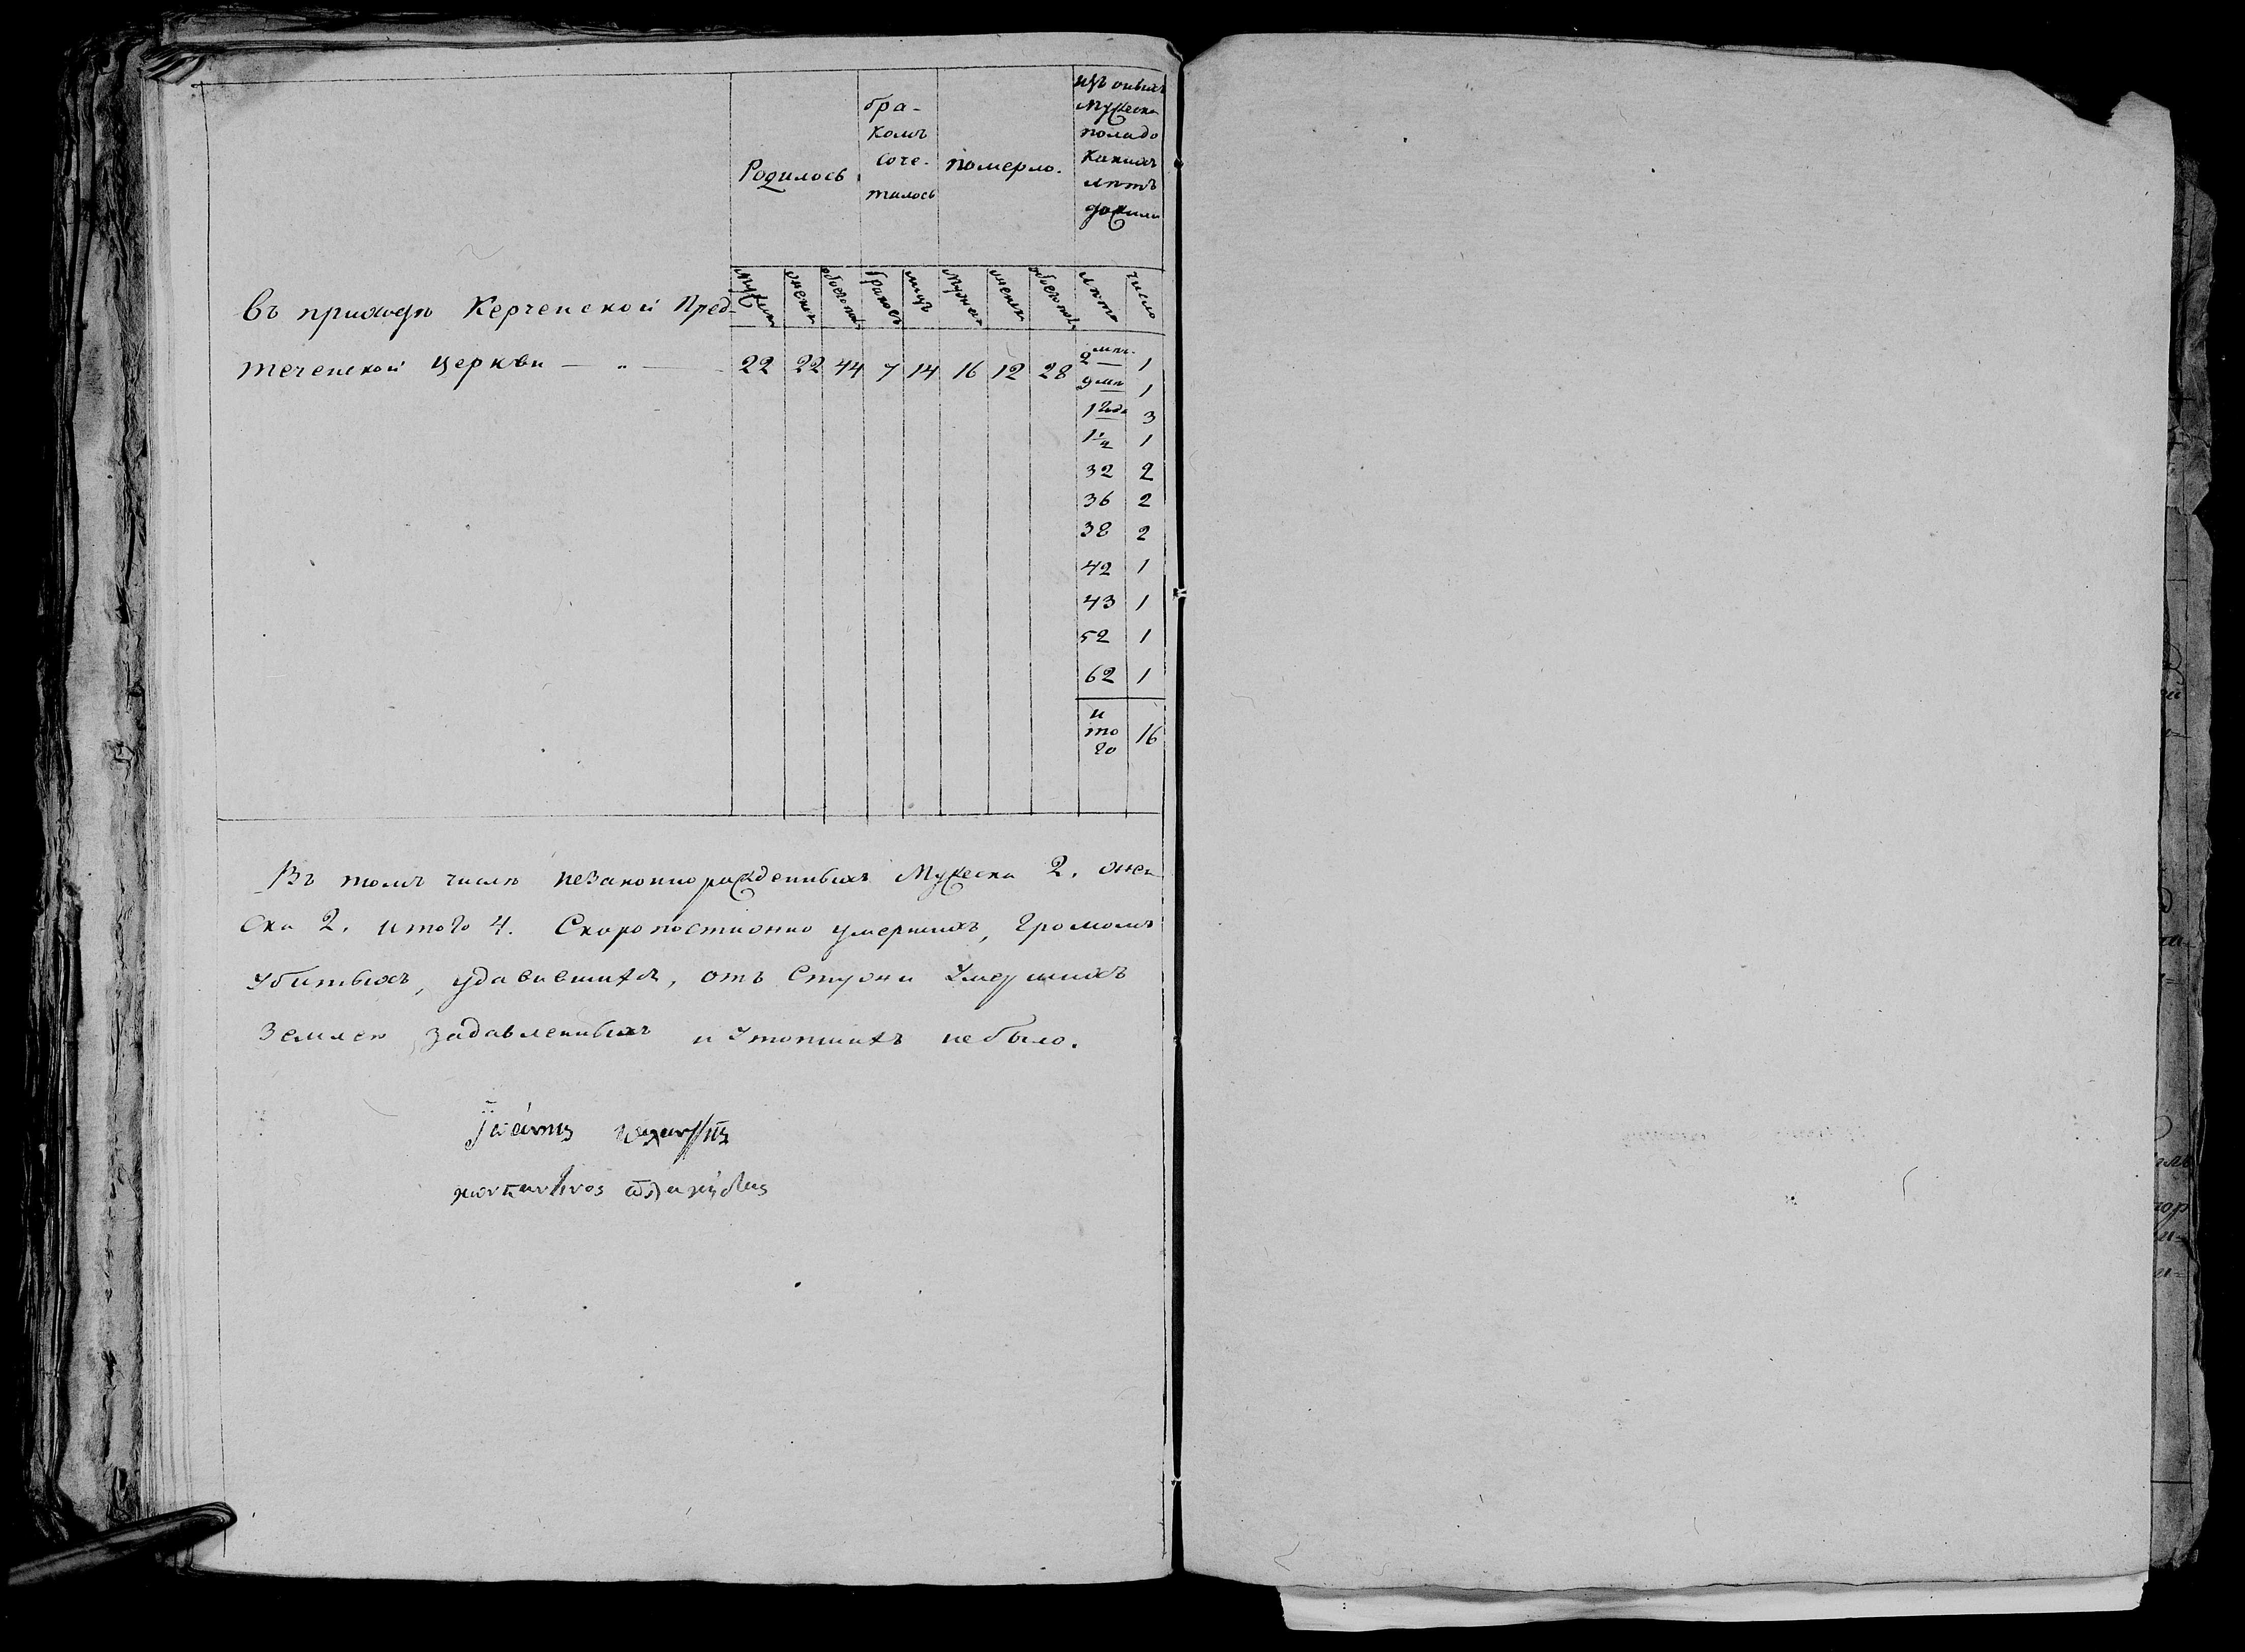 Родилось
бра-
комъ
соче-
талось
померло.
изъ оныхъ
Мужеска
пола до
какихъ
лѣтъ
дожили
Мужеска
женска
обоего пола
браковъ
лицъ
Мужеска
женска
обоего пола
лѣта
число
Въ приходѣ Керченской Пред-
теченской Церкви — „ —
22 22 44 7 14 16 12 28 2 мѣс. 1
9 мѣ 1
1 года 3
1½ 1
32 2
36 2
38 2
42 1
43 1
52 1
62 1
и
то
го 16
Въ томъ числѣ незаконнорожденныхъ Мужеска 2. жен
ска 2. итого 4. Скоропостижно умершихъ, громомъ
убитыхъ, удавившихся, отъ стужи умершихъ
землею задавленныхъ и утопшихъ не было.